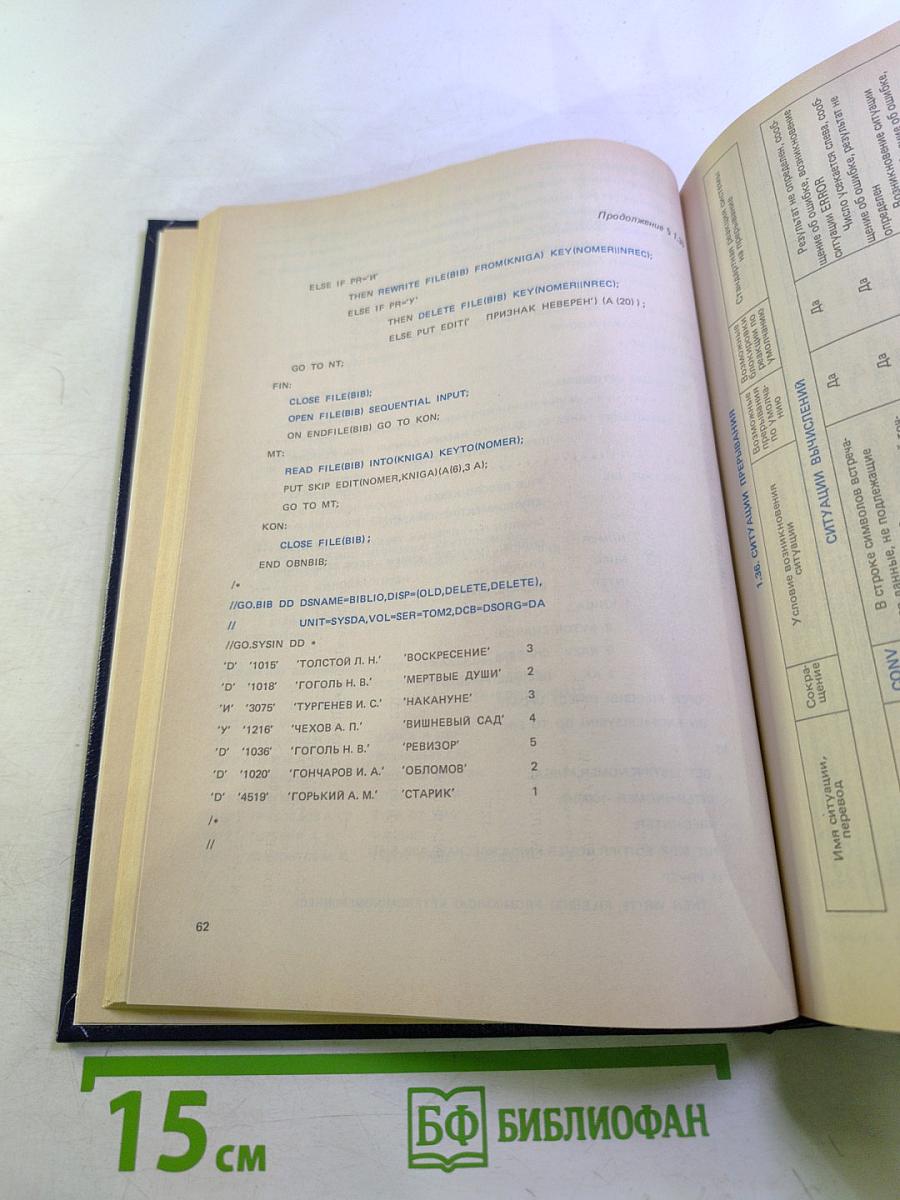 Продолжение § 1.35
ELSE IF PR='И'
THEN REWRITE FILE(BIB) FROM(KNIGA) KEY(NOMER||NREC);
ELSE IF PR='У'
THEN DELETE FILE(BIB) KEY(NOMER||NREC);
ELSE PUT EDIT(' ПРИЗНАК НЕВЕРЕН') (A (20) ) ;
GO TO NT;
FIN:
CLOSE FILE(BIB);
OPEN FILE(BIB) SEQUENTIAL INPUT;
ON ENDFILE(BIB) GO TO KON;
MT:
READ FILE(BIB) INTO(KNIGA) KEYTO(NOMER);
PUT SKIP EDIT(NOMER,KNIGA)(A(6),3 A);
GO TO MT;
KON:
CLOSE FILE(BIB) ;
END OBNBIB;
/*
//GO.BIB DD DSNAME=BIBLIO,DISP=(OLD,DELETE,DELETE),
// UNIT=SYSDA,VOL=SER=TOM2,DCB=DSORG=DA
//GO.SYSIN DD *
'D' '1015' 'ТОЛСТОЙ Л. Н.' 'ВОСКРЕСЕНИЕ' 3
'D' '1018' 'ГОГОЛЬ Н. В.' 'МЕРТВЫЕ ДУШИ' 2
'И' '3075' 'ТУРГЕНЕВ И. С.' 'НАКАНУНЕ' 3
'У' '1216' 'ЧЕХОВ А. П.' 'ВИШНЕВЫЙ САД' 4
'D' '1036' 'ГОГОЛЬ Н. В.' 'РЕВИЗОР' 5
'D' '1020' 'ГОНЧАРОВ И. А.' 'ОБЛОМОВ' 2
'D' '4519' 'ГОРЬКИЙ А. М.' 'СТАРИК' 1
/*
//
62
1.36. СИТУАЦИИ ПРЕРЫВАНИЙ
Имя ситуации,
перевод
Сокра-
щение
Условие возникновения
ситуации
Возможные
прерывания
по умолча-
нию
Возможные
блокировки
реакции по
умолчанию
Стандартная реакция системы
на прерывание
СИТУАЦИИ ВЫЧИСЛЕНИЙ
CONV
В строке символов встреча-
данные, не подлежащие
Да
Да
Результат не определен, сооб-
щение об ошибке, возникновение
ситуации ERROR
Да
Да
Число усекается слева, сооб-
щение об ошибке, результат не
определен
Возникновение ситуации
об ошибке,
15 см
БФ БИБЛИОФАН